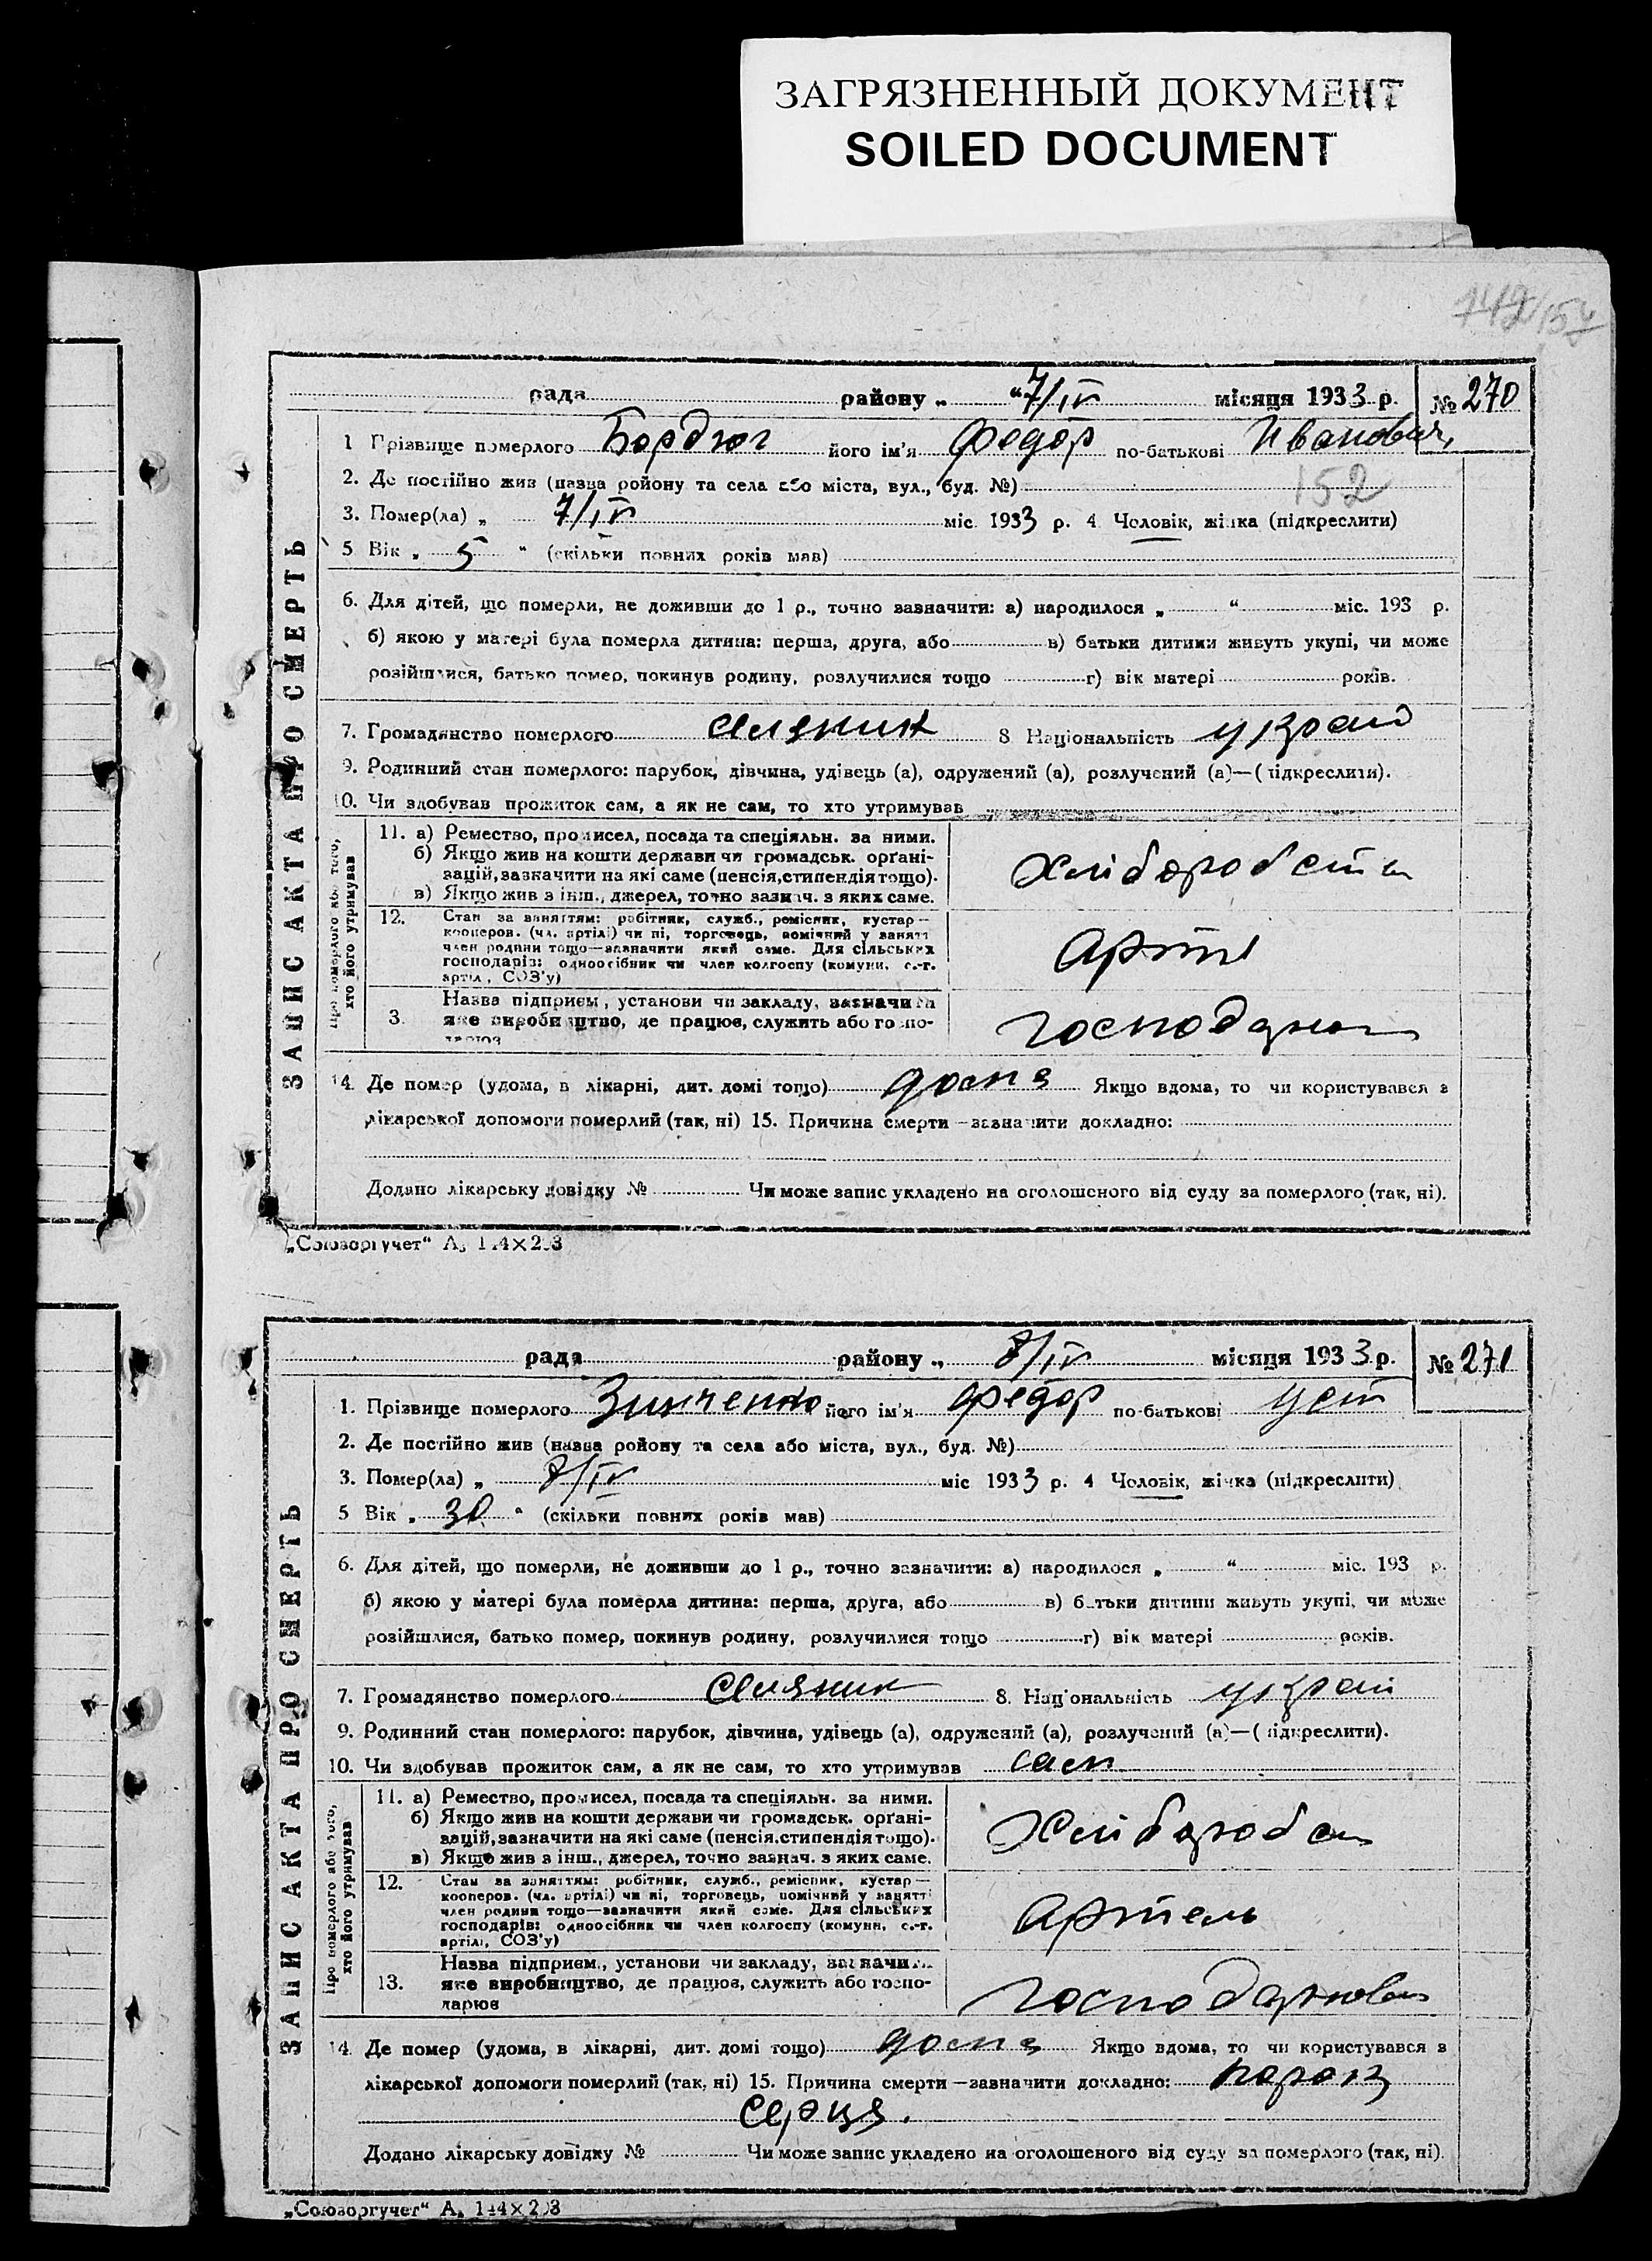 ЗАГРЯЗНЕННЫЙ ДОКУМЕНТ
SOILED DOCUMENT
152
рада району „ “ 7/IV місяця 1933 р. № 270
1 Прізвище померлого Бордюг його ім'я Федор по-батькові Иванович
2. Де постійно жив (назва ройону та села або міста, вул., буд. №)
3. Помер(ла) „ 7/IV міс. 1933 р. 4 Чоловік, жінка (підкреслити)
5 Вік „ 5 “ (скільки повних років мав)
6. Для дітей, що померли, не доживши до 1 р., точно зазначити: а) народилося „ “ міс. 193 р.
б) якою у матері була померла дитина: перша, друга, або в) батьки дитини живуть укупі, чи може
розійшлися, батько помер, покинув родину, розлучилися тощо г) вік матері років.
7. Громадянство померлого селяник 8 Національність украй
9. Родинний стан померлого: парубок, дівчина, удівець (а), одружений (а), розлучений (а)—(підкреслити).
10. Чи здобував прожиток сам, а як не сам, то хто утримував
ЗАПИС АКТА ПРО СМЕРТЬ
Про померлого або того,
хто його утримував
11. а) Ремество, промисел, посада та спеціяльн. за ними.
б) Якщо жив на кошти держави чи громадськ. орґані-
зацій, зазначити на які саме (пенсія, стипендія тощо).
в) Якщо жив з інш., джерел, точно зазнач. з яких саме.
12. Стан за заняттям: робітник, служб., ремісник, кустар—
кооперов. (чл. артілі) чи ні, торговець, помічний у занятті
член родини тощо—зазначити який саме. Для сільських
господарів: одноосібник чи член колгоспу (комуни, с.-г.
артіл, СОЗ'у)
Арті
Назва підприєм, установи чи закладу, зазначити
3. яке виробництво, де працює, служить або госпо-
дарює
14. Де помер (удома, в лікарні, дит. домі тощо) дома Якщо вдома, то чи користувався з
лікарської допомоги померлий (так, ні) 15. Причина смерти—зазначити докладно:
Додано лікарську довідку № Чи може запис укладено на оголошеного від суду за померлого (так, ні).
„Союзоргучет“
рада району „ 8/IV місяця 1933 р. № 271
1. Прізвище померлого Зинченко його ім'я Федор по-батькові Уст
2. Де постійно жив (назва ройону та села або міста, вул., буд. №)
3. Помер(ла) „ 8/IV міс 1933 р. 4 Чоловік, жінка (підкреслити)
5 Вік „ 30 “ (скільки повних років мав)
6. Для дітей, що померли, не доживши до 1 р., точно зазначити: а) народилося „ “ міс. 193 р.
б) якою у матері була померла дитина: перша, друга, або в) батьки дитини живуть укупі, чи може
розійшлися, батько помер, покинув родину, розлучилися тощо г) вік матері років.
7. Громадянство померлого селяник 8. Національність украй
9. Родинний стан померлого: парубок, дівчина, удівець (а), одружений (а), розлучений (а)—(підкреслити).
10. Чи здобував прожиток сам, а як не сам, то хто утримував сам
ЗАПИС АКТА ПРО СМЕРТЬ
Про померлого або того,
хто його утримував
11. а) Ремество, промисел, посада та спеціяльн. за ними.
б) Якщо жив на кошти держави чи громадськ. орґані-
зацій, зазначити на які саме (пенсія, стипендія тощо).
в) Якщо жив з інш., джерел, точно зазнач. з яких саме.
12. Стан за заняттям: робітник, служб., ремісник, кустар—
кооперов. (чл. артілі) чи ні, торговець, помічний у занятті
член родини тощо—зазначити який саме. Для сільських
господарів: одноосібник чи член колгоспу (комуни, с.-г.
артілі, СОЗ'у)
Артель
Назва підприєм., установи чи закладу, зазначити
13. яке виробництво, де працює, служить або госпо-
дарює
14. Де помер (удома, в лікарні, дит. домі тощо) дома Якщо вдома, то чи користувався з
лікарської допомоги померлий (так, ні) 15. Причина смерти—зазначити докладно: порок
серця.
Додано лікарську довідку № Чи може запис укладено на оголошеного від суду за померлого (так, ні).
„Союзоргучет“